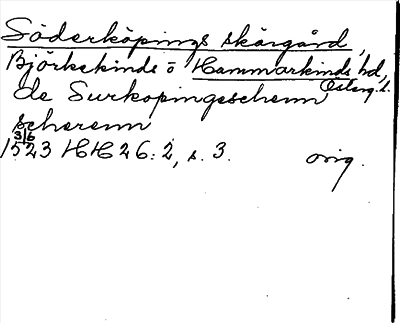 Söderköpings skärgård,
Björkekinds o Hammarkinds hd,
Österg. l.
de Surkopingeschenn
scherenn
3/6
1523 HH 26:2, s. 3. orig.